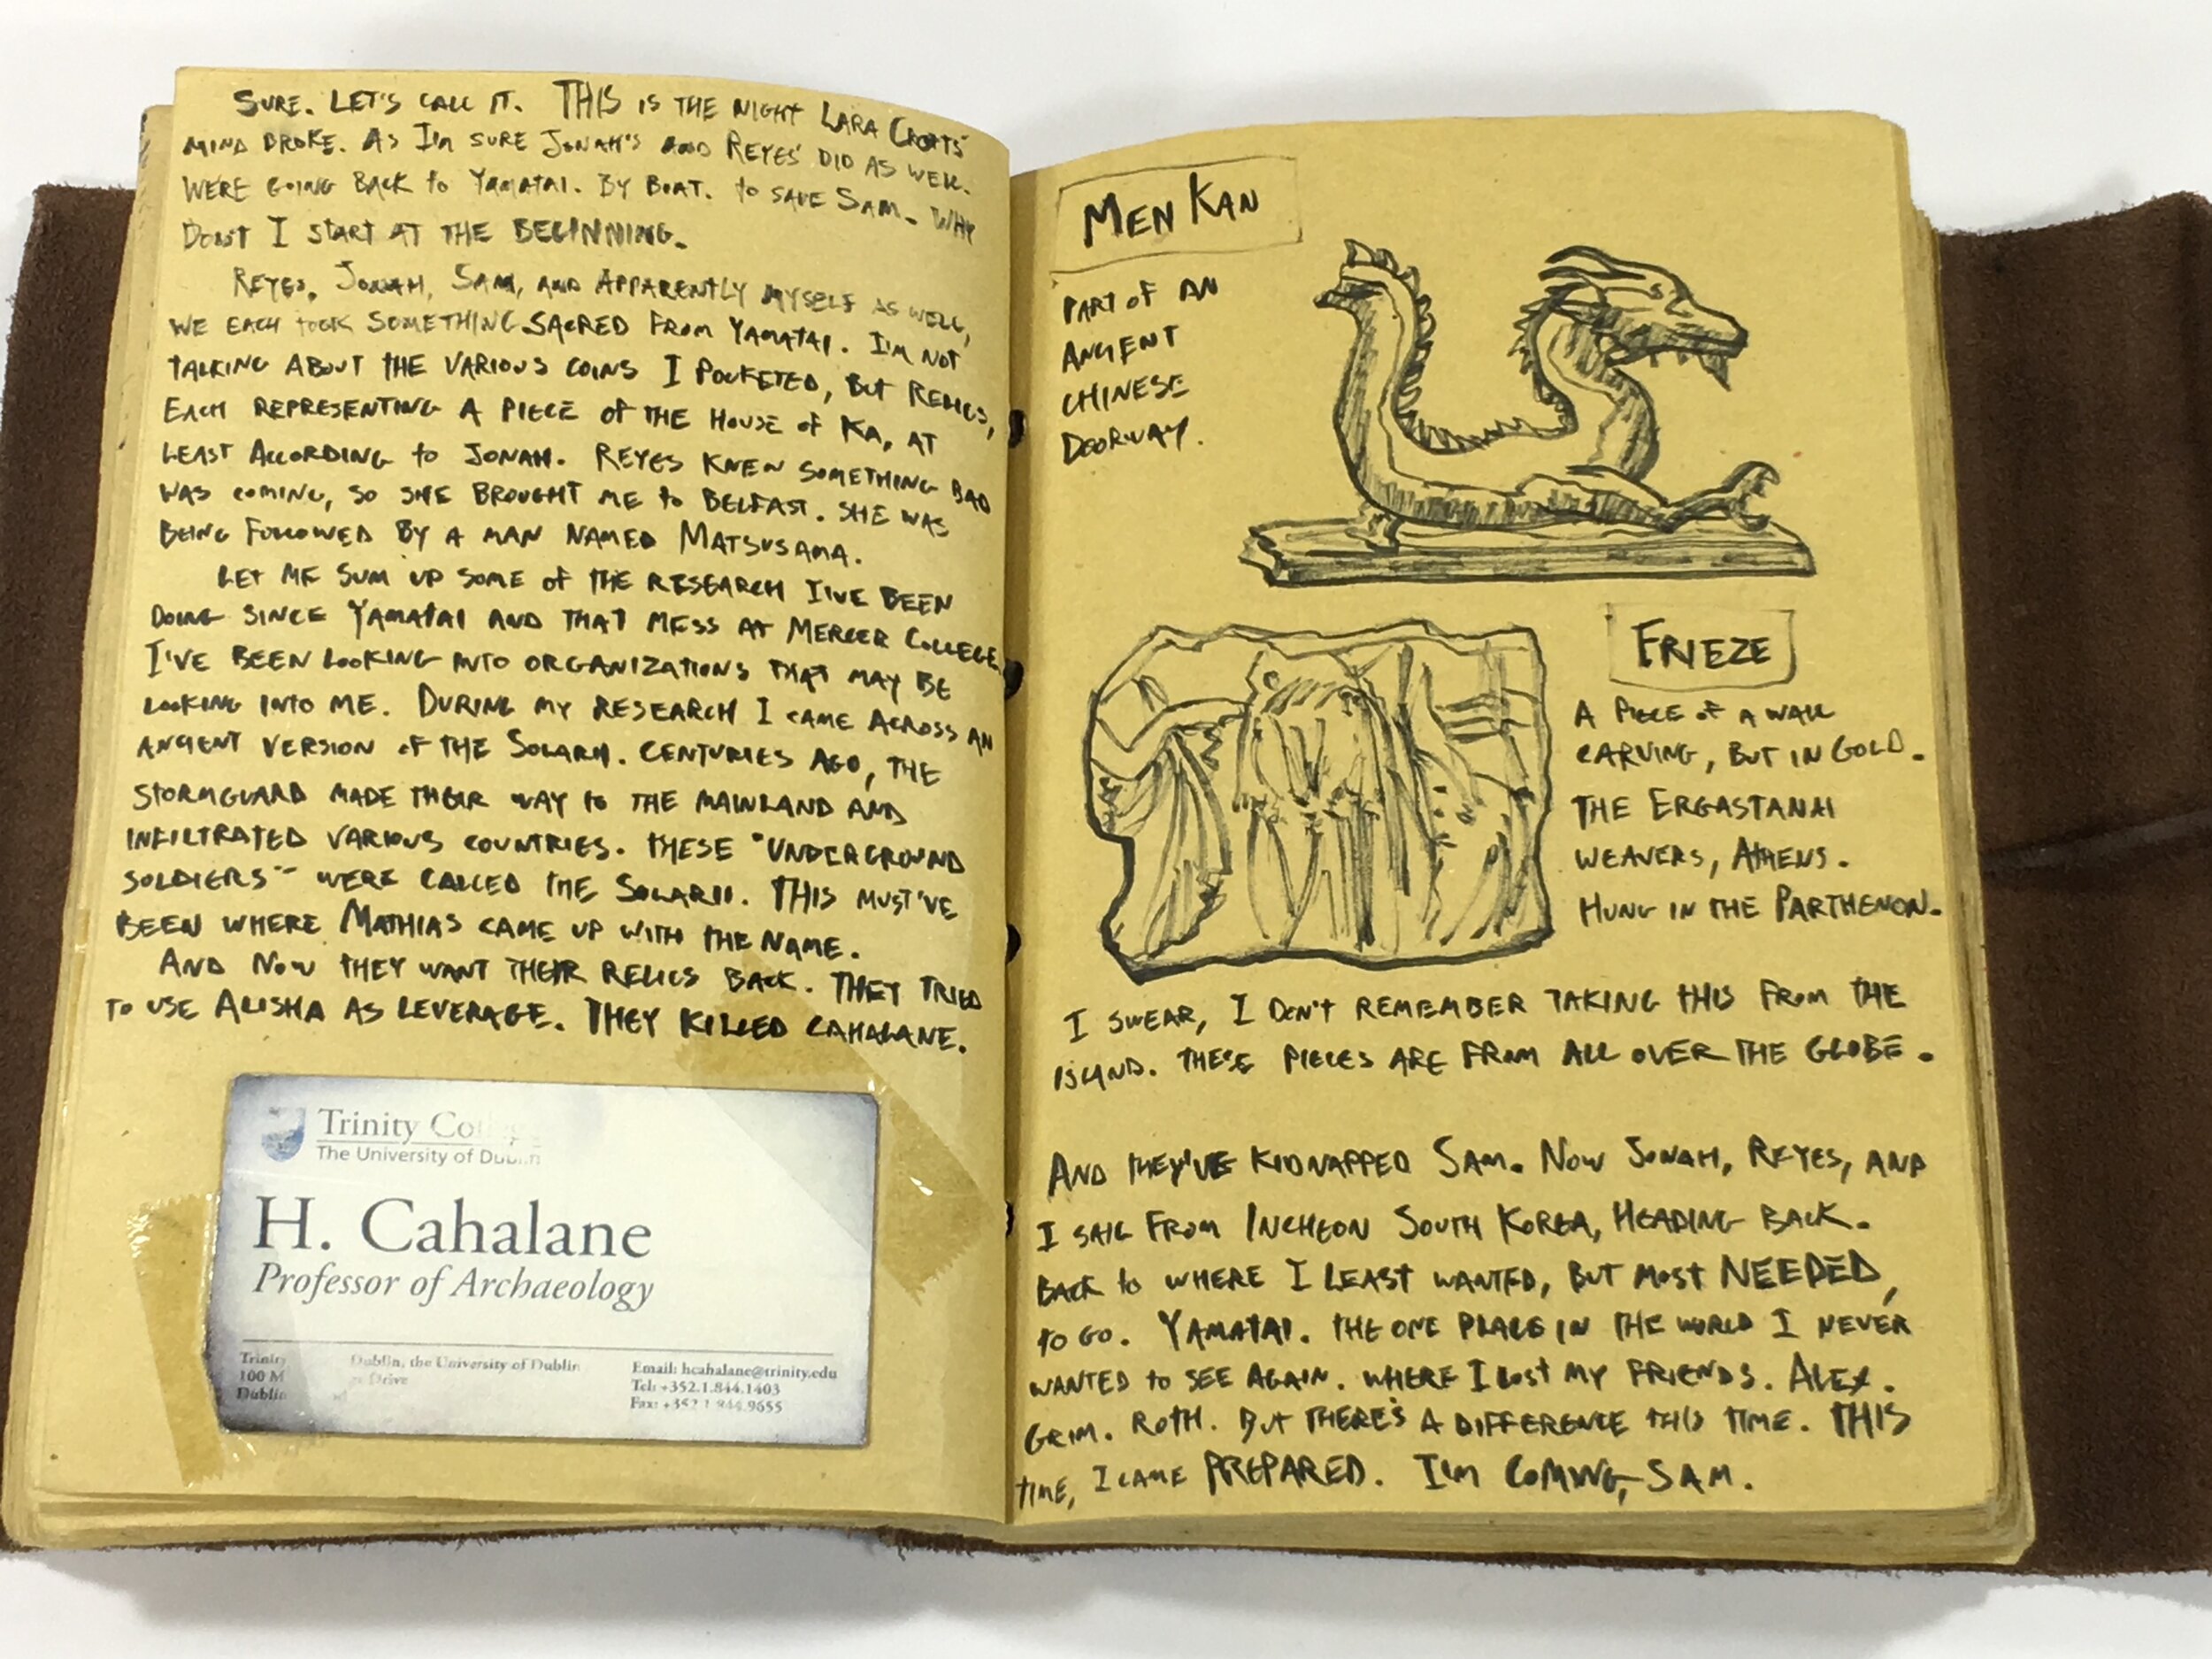 SURE. LET'S CALL IT. THIS IS THE NIGHT LARA CROFTS
MIND BROKE. AS I'M SURE JONAH'S AND REYES' DID AS WELL.
WE'RE GOING BACK TO YAMATAI. BY BOAT. TO SAVE SAM. WHY
DON'T I START AT THE BEGINNING.
REYES, JONAH, SAM, AND APPARENTLY MYSELF AS WELL,
WE EACH TOOK SOMETHING SACRED FROM YAMATAI. I'M NOT
TALKING ABOUT THE VARIOUS COINS I POCKETED, BUT RELICS,
EACH REPRESENTING A PIECE OF THE HOUSE OF KA, AT
LEAST ACCORDING TO JONAH. REYES KNEW SOMETHING BAD
WAS COMING, SO SHE BROUGHT ME TO BELFAST. SHE WAS
BEING FOLLOWED BY A MAN NAMED MATSUSAMA.
LET ME SUM UP SOME OF THE RESEARCH I'VE BEEN
DOING SINCE YAMATAI AND THAT MESS AT MERCER COLLEGE.
I'VE BEEN LOOKING INTO ORGANIZATIONS THAT MAY BE
LOOKING INTO ME. DURING MY RESEARCH I CAME ACROSS AN
ANCIENT VERSION OF THE SOLARII. CENTURIES AGO, THE
STORMGUARD MADE THEIR WAY TO THE MAINLAND AND
INFILTRATED VARIOUS COUNTRIES. THESE "UNDERGROUND
SOLDIERS" WERE CALLED THE SOLARII. THIS MUST'VE
BEEN WHERE MATHIAS CAME UP WITH THE NAME.
AND NOW THEY WANT THEIR RELICS BACK. THEY TRIED
TO USE ALISHA AS LEVERAGE. THEY KILLED CAHALANE.
Trinity Col
The University of Dublin
H. Cahalane
Professor of Archaeology
Trinity Dublin, the University of Dublin
100 M Drive
Dublin
Email: hcahalane@trinity.edu
Tel: +352.1.844.1403
Fax: +352.1.844.9655
MEN KAN
PART OF AN
ANCIENT
CHINESE
DOORWAY.
FRIEZE
A PIECE OF A WALL
CARVING, BUT IN GOLD.
THE ERGASTANAI
WEAVERS, ATHENS.
HUNG IN THE PARTHENON.
I SWEAR, I DON'T REMEMBER TAKING THIS FROM THE
ISLAND. THESE PIECES ARE FROM ALL OVER THE GLOBE.
AND THEY'VE KIDNAPPED SAM. NOW JONAH, REYES, AND
I SAIL FROM INCHEON SOUTH KOREA, HEADING BACK.
BACK TO WHERE I LEAST WANTED, BUT MOST NEEDED,
TO GO. YAMATAI. THE ONE PLACE IN THE WORLD I NEVER
WANTED TO SEE AGAIN. WHERE I LOST MY FRIENDS. ALEX.
GRIM. ROTH. BUT THERE'S A DIFFERENCE THIS TIME. THIS
TIME, I CAME PREPARED. I'M COMING, SAM.